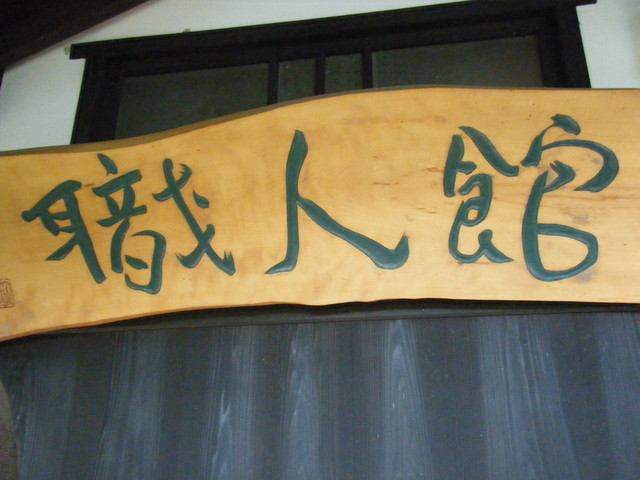 職人館